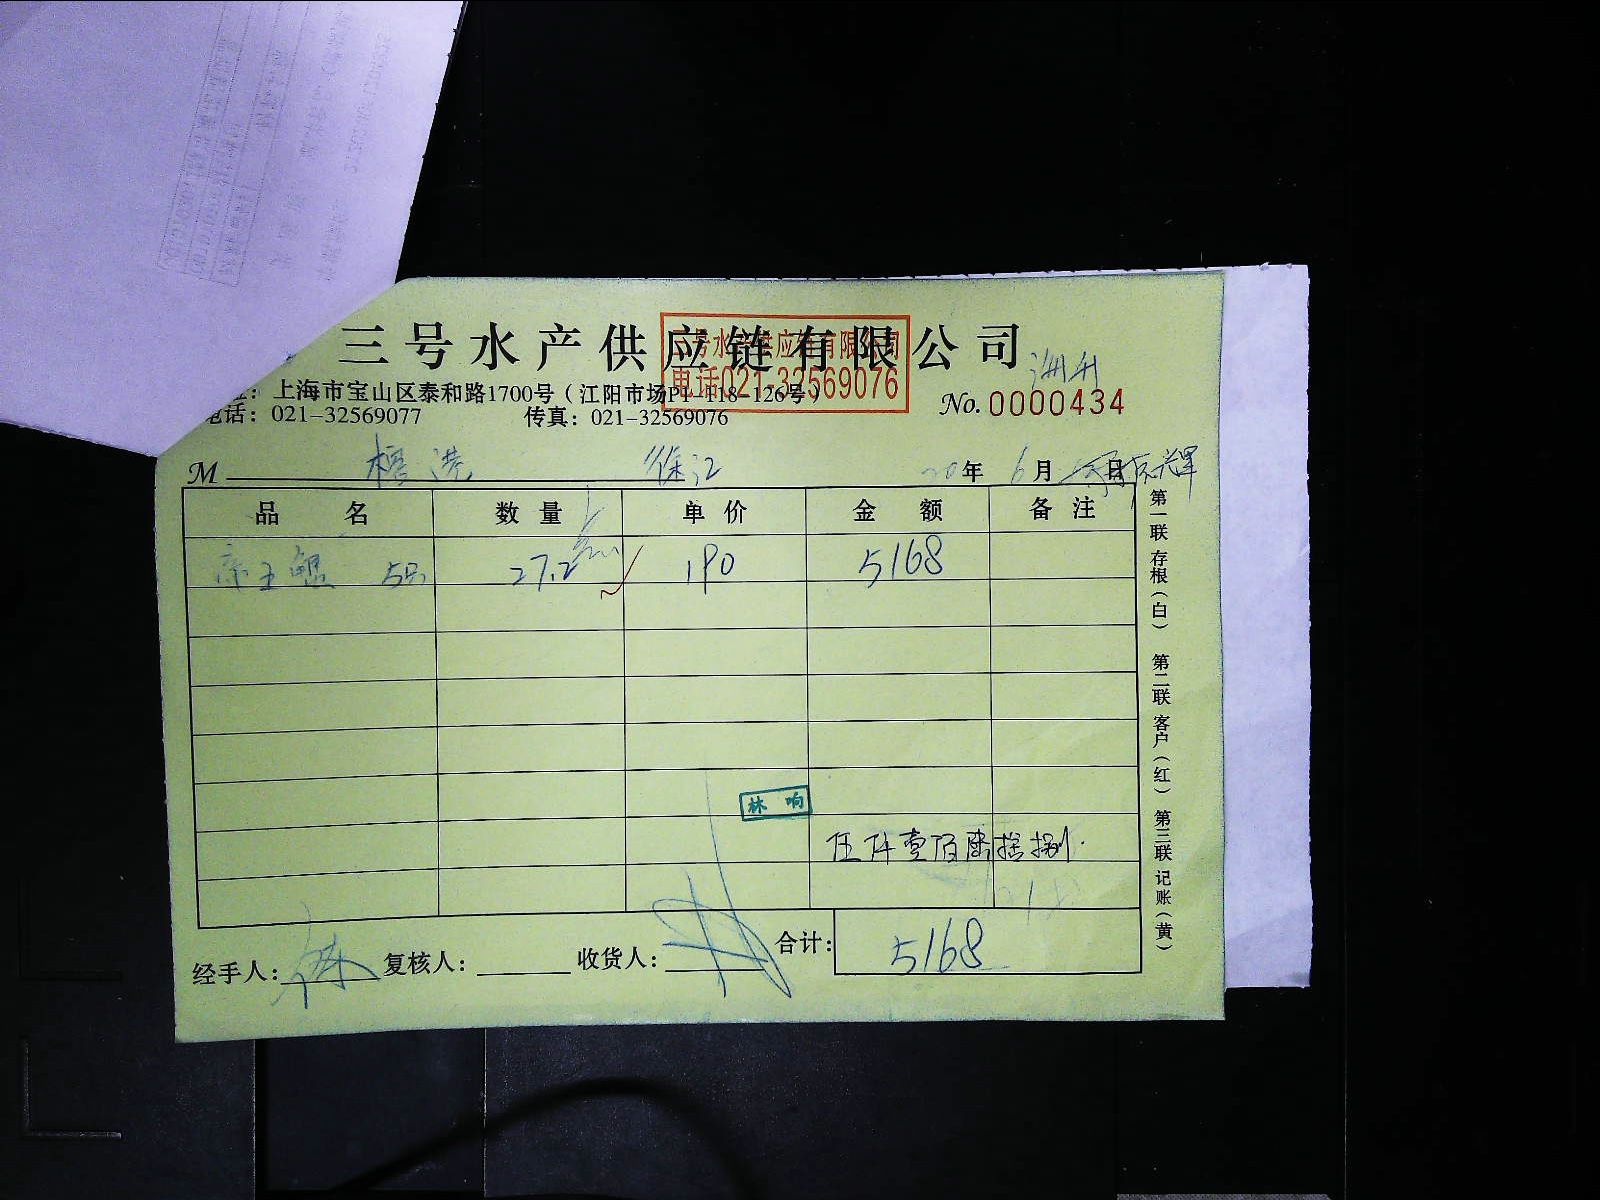 三号水产供应链有限公司
三号水产供应链有限公司
电话021-32569076
：上海市宝山区泰和路1700号（江阳市场P1-118-126号）
电话：021-32569077 传真：021-32569076
No. 0000434
M 徐江 20年 6月 日
品名 数量 单价 金额 备注
帝王鳕 5只 27.2 190 5168
林响
伍仟壹佰陆拾捌
经手人： 复核人： 收货人： 合计： 5168
第一联 存根（白） 第二联 客户（红） 第三联 记账（黄）